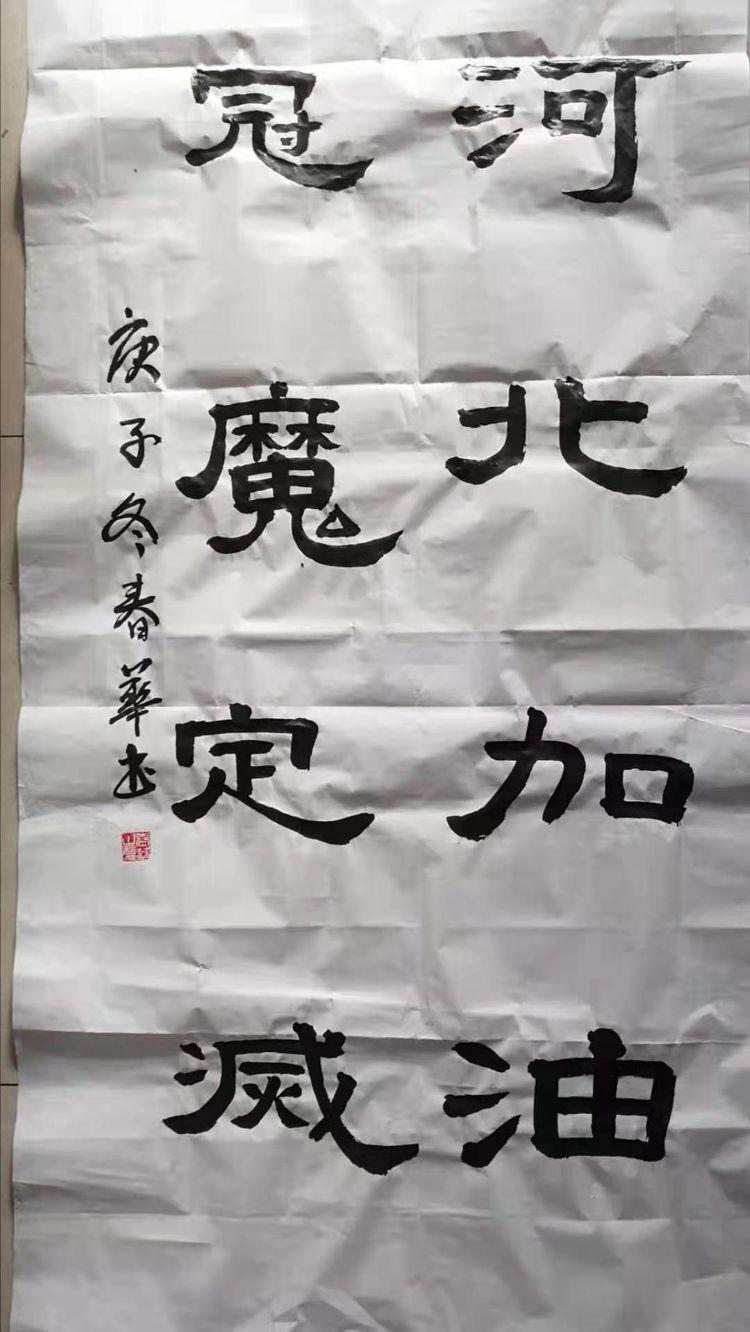 河北加油
冠魔定滅
庚子冬春華书